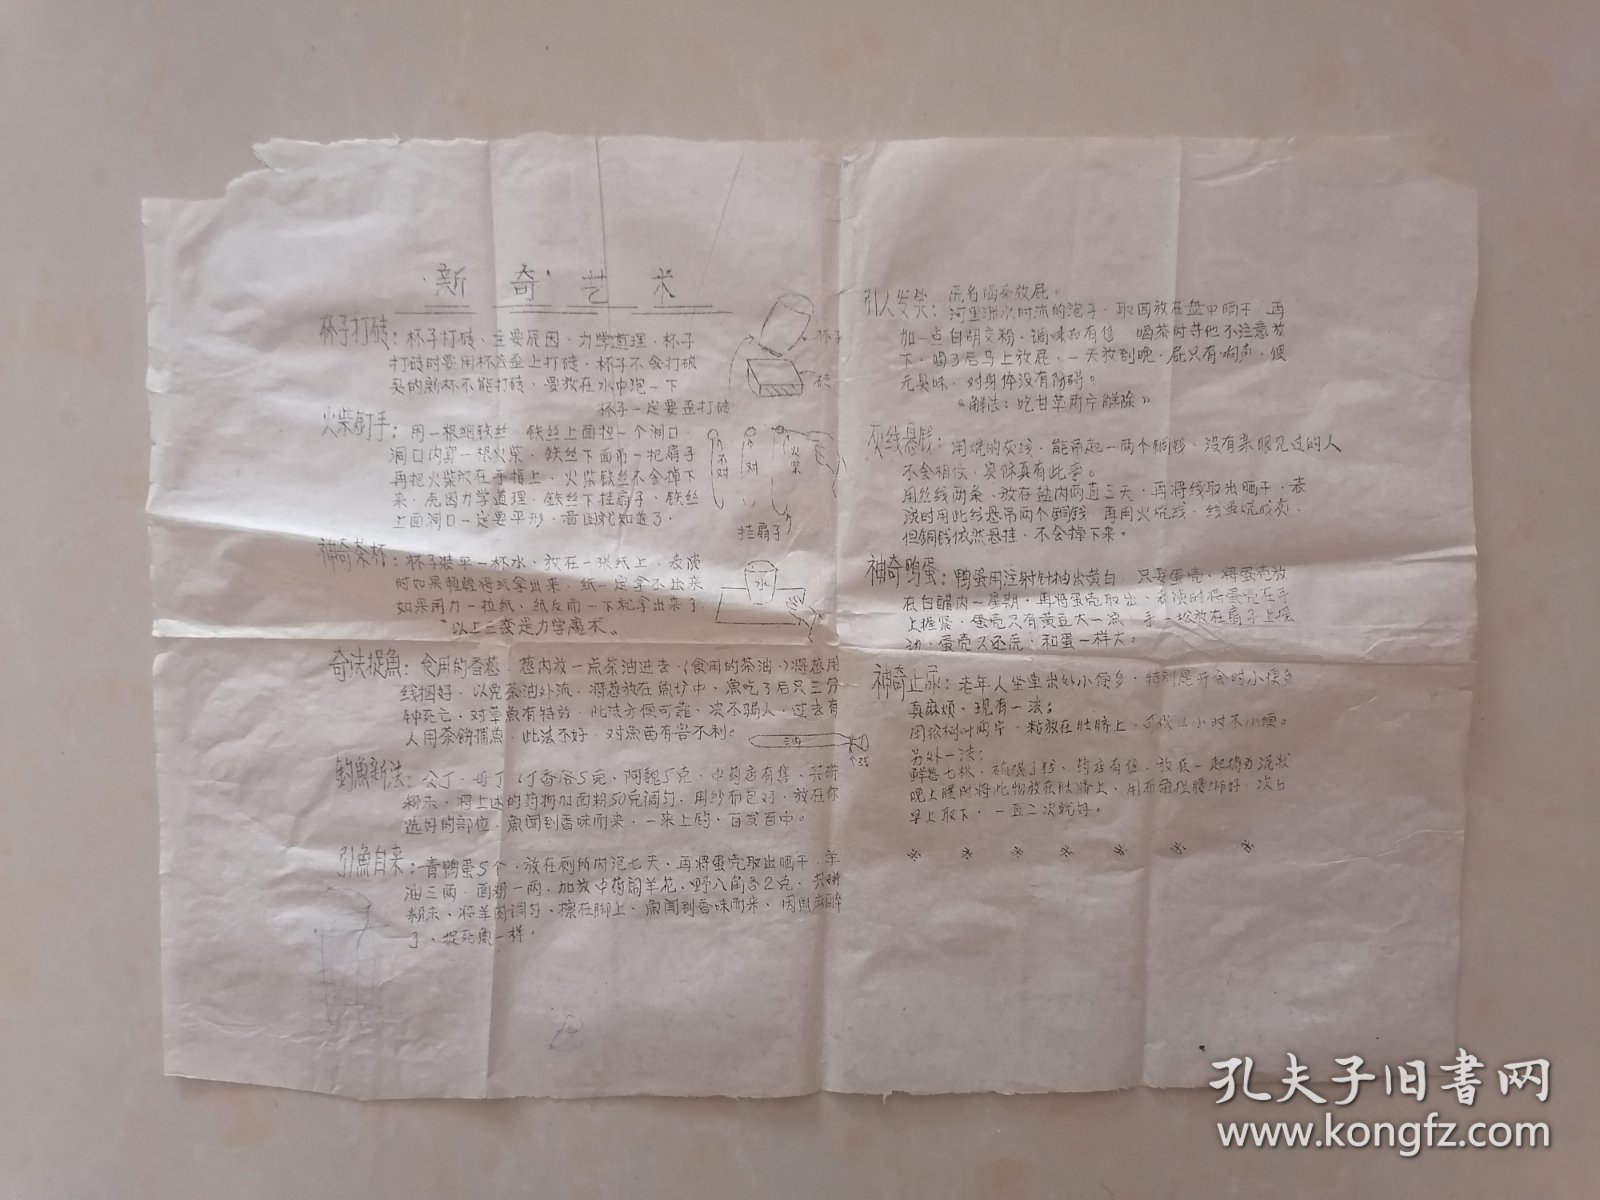 新奇艺术
杯子打砖：杯子打砖，主要原因，力学道理，杯子
打砖时要用杯底歪上打砖，杯子不会打破
的新杯不能打砖，要放在水中泡一下
杯子一定要歪打砖
杯子
砖
火柴割手：用一根细铁丝，铁丝上面扭一个洞口
洞口内穿一根火柴，铁丝下面吊一把扇子
再把火柴放在手指上，火柴铁丝不会掉下
来，原因力学道理，铁丝下挂扇子，铁丝
上面洞口一定要平形，看图就知道了，
不对
对
火柴
挂扇子
神奇茶杯：杯子装平一杯水，放在一张纸上，表演
时如果轻轻将纸拿出来，纸一定拿不出来
如果用力一拉纸，纸反而一下就拿出来了
“以上三变是力学魔术”
水
奇法捉魚：食用的香葱，葱内放一点茶油进去，（食用的茶油，）将葱用
线捆好，以免茶油外流，将葱放在魚圹中，魚吃了后只三分
钟死亡，对草魚有特效，此法方便可靠，决不骗人，过去有
人用茶餅捕魚，此法不好，对魚苗有害不利。
钓魚新法：公丁，母丁，（丁香各5克，阿魏5克，中药店有售，共研
粉末，将上述的药物加面粉50克调匀，用纱布包好，放在你
选好的部位，魚闻到香味而来，一来上钓，百发百中。
引魚自来：青鸭蛋5个，放在厕所内泡七天，再将蛋壳取出晒干，羊
油三两，面粉一两，加放中药闹羊花，野八角各2克，共研
粉末，将羊肉调匀，擦在脚上，魚闻到香味而来，因魚麻醉
了，捉死魚一样，
引人发笑：原名喝茶放屁。
河里涨水时流的泡子，取回放在盘中晒干，再
加一点白胡交粉，调味品有售，喝茶时等他不注意放
下，喝了后马上放屁，一天放到晚，屁只有响声，但
无臭味，对身体没有防碍。
《解法：吃甘草两片解除》
灰线悬钱：用烧的灰线，能吊起一两个铜钱，没有亲眼见过的人
不会相仪，实际真有此事。
用丝线两条，放在盐内两直三天，再将线取出晒干，表
演时用此线悬吊两个铜钱，再用火烧线，线虽烧成灰，
但铜钱依然悬挂，不会掉下来。
神奇鸭蛋：鸭蛋用注射针抽出黄白，只要蛋壳，将蛋壳放
在白醋内一星期，再将蛋壳取出，表演时将蛋壳在手
上握紧，蛋壳只有黄豆大一流，手一松放在扇子上摇
动，蛋壳又还原，和蛋一样大。
神奇止尿：老年人坐车出外小便多，特别是开会时小便多
真麻烦，现有一法；
树叶两片，粘放在肚脐上，可保4小时不小便。
另外一法：
鲜葱七根，硫磺3钱，药店有售，放在一起捣为泥状
晚上睡时将此物放在肚脐上，用布带栏腰绑好，次日
早上取下，一直二次就好。
＊ ＊ ＊ ＊ ＊ ＊ ＊
孔夫子旧書网
www.kongfz.com